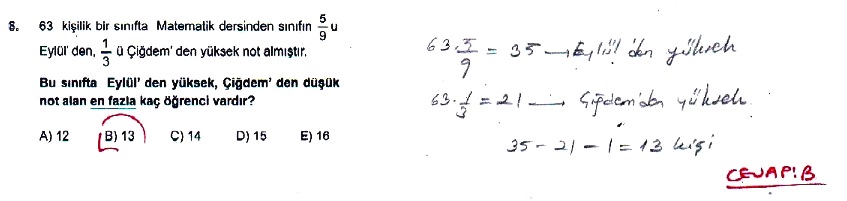 8. 63 kişilik bir sınıfta Matematik dersinden sınıfın 5/9 u
Eylül' den, 1/3 ü Çiğdem' den yüksek not almıştır.
Bu sınıfta Eylül' den yüksek, Çiğdem' den düşük
not alan en fazla kaç öğrenci vardır?
A) 12 B) 13 C) 14 D) 15 E) 16
63 . 5/9 = 35 → Eylül'den yüksek
63 . 1/3 = 21 → Çiğdem'den yüksek.
35 - 21 - 1 = 13 kişi
CEVAP: B